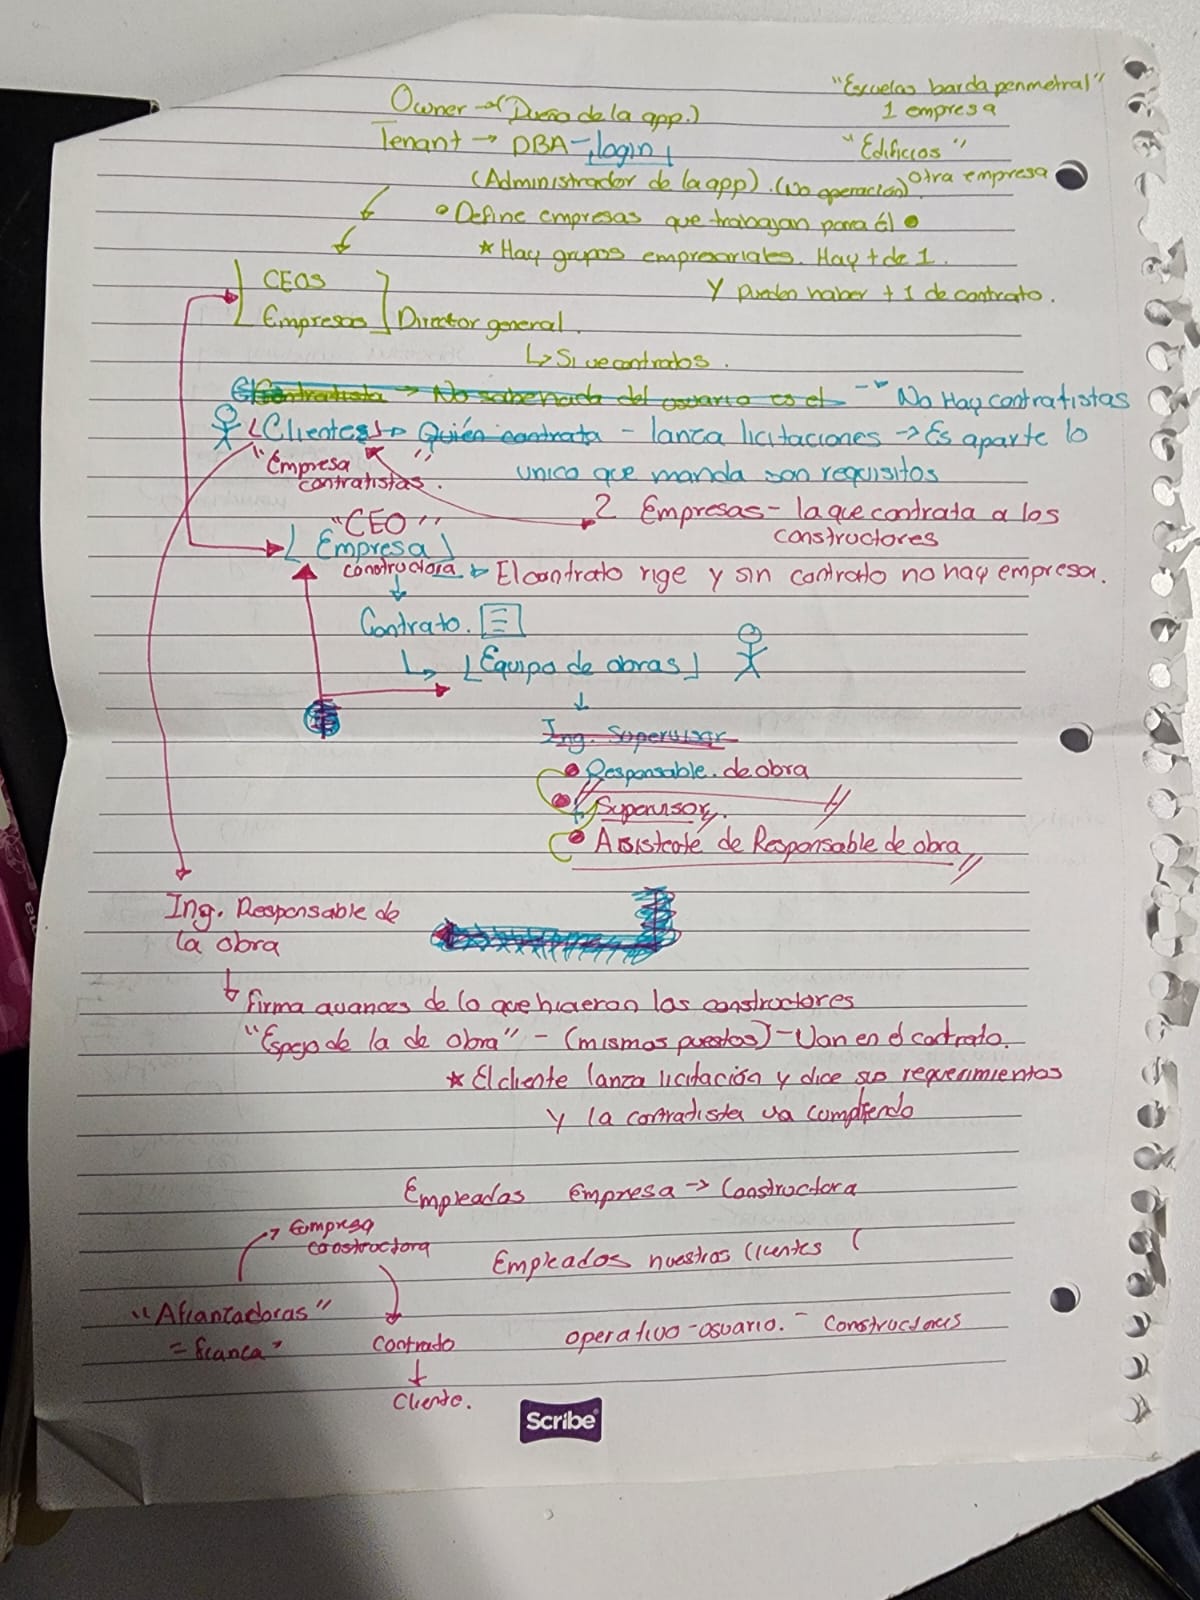 "Escuelas barda perimetral"
1 empresa
Owner → (Dueño de la app.)
Tenant → DBA - login
"Edificios"
otra empresa
(Administrador de la app). (No operación)
• Define empresas que trabajan para él •
* Hay grupos empresariales. Hay + de 1.
Y pueden haber + 1 de contrato.
CEOS
Empresas
Director general.
↳ Si ve contratos.
Contratista → No sabe nada del usuario es el
No Hay contratistas
[Clientes] → Quién contrata - lanza licitaciones → Es aparte lo
unico que manda son requisitos
"Empresa
contratistas".
2 Empresas - la que contrata a los
constructores
"CEO"
[Empresa]
constructora → El contrato rige y sin contrato no hay empresa.
Contrato.
↳ [Equipo de obras]
Ing. Supervisor
• Responsable de obra
• Supervisor
• Asistente de Responsable de obra
Ing. Responsable de
la obra
↳ firma avances de lo que hicieron los constructores
"Espejo de la de obra" - (mismos puestos) - Van en el contrato.
* El cliente lanza licitación y dice sus requerimientos
y la contratista va cumpliendo
Empleados empresa → Constructora
→ Empresa
constructora
Empleados nuestros clientes (
"Afianzadoras"
= fianza"
Contrado
operativo - usuario. - Constructores
Cliente.
Scribe